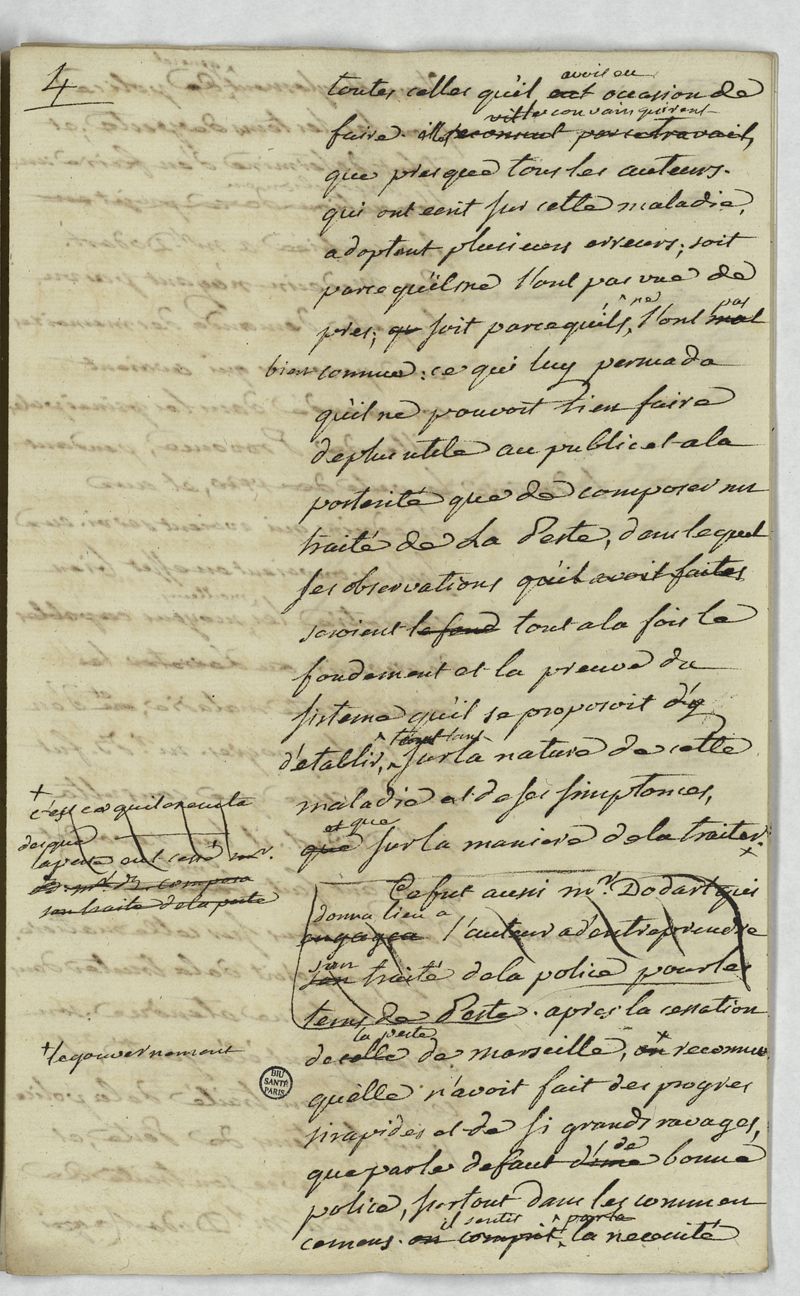 4
avoir eu
toutes celles qu'il eut occasion de
vitte convainquirent
faire. il reconnut par ce travail,
que presque tous les auteurs.
qui ont ecrit sur cette maladie,
adoptent plusieurs erreurs; soit
parce qu'ils ne l'ont pas vue de
ne pas
pres; qu soit parcequ'ils, l'ont mal
bien connue: ce qui luy persuada
qu'il ne pouvoit rien faire
de plus utile au public et a la
posterité que de composer un
traité de La Peste, dans lequel
ses observations qu'il avoit faites
seroient le fond tout a la fois le
fondement et la preuve du
sisteme qu'il se proposoit d'y
tant
d'établir, sur la nature de cette
maladie et de ses simptomes,
et que
que sur la maniere de la traiter.
+
+
c'est ce qu'il executa
des que
la peste eut cessé mr.
composa
son traité de la peste
Ce fut aussi mr. Dodart qui
donna lieu a
engagea l'auteur a d'entreprendre
son
son traité de la police pour les
tems de Peste. apres la cessation
la peste
+ le gouvernement
BIU
SANTÉ
PARIS
de celle de marseille, on + reconnu
qu'elle n'avoit fait des progres
si rapides et de si grands ravages,
de
que par le defaut d'une bonne
police, surtout dans les commen
il sentit par la
cemens. on comprit, la necessité